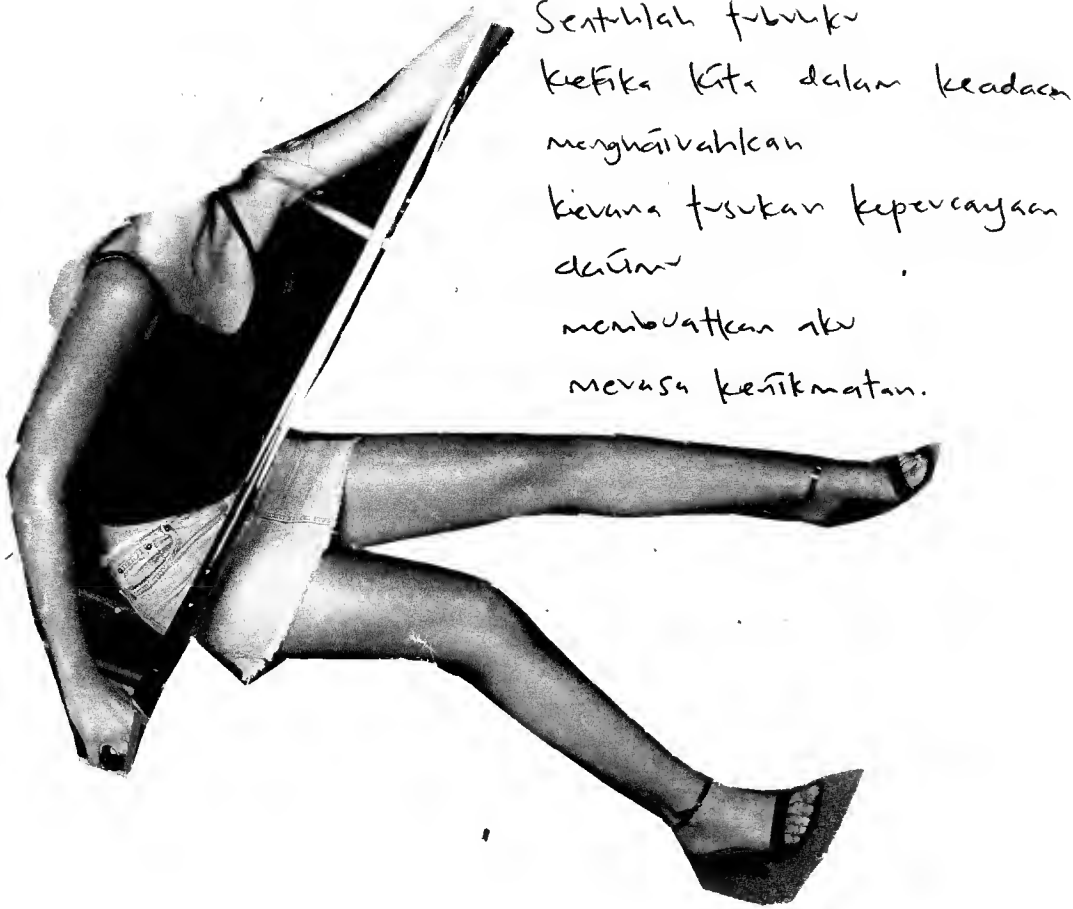 Sentuhlah tubuhku
ketika kita dalam keadaan
menghairahkan
kerana tusukan kepercayaan
darimu
membuatkan aku
merasa kenikmatan.